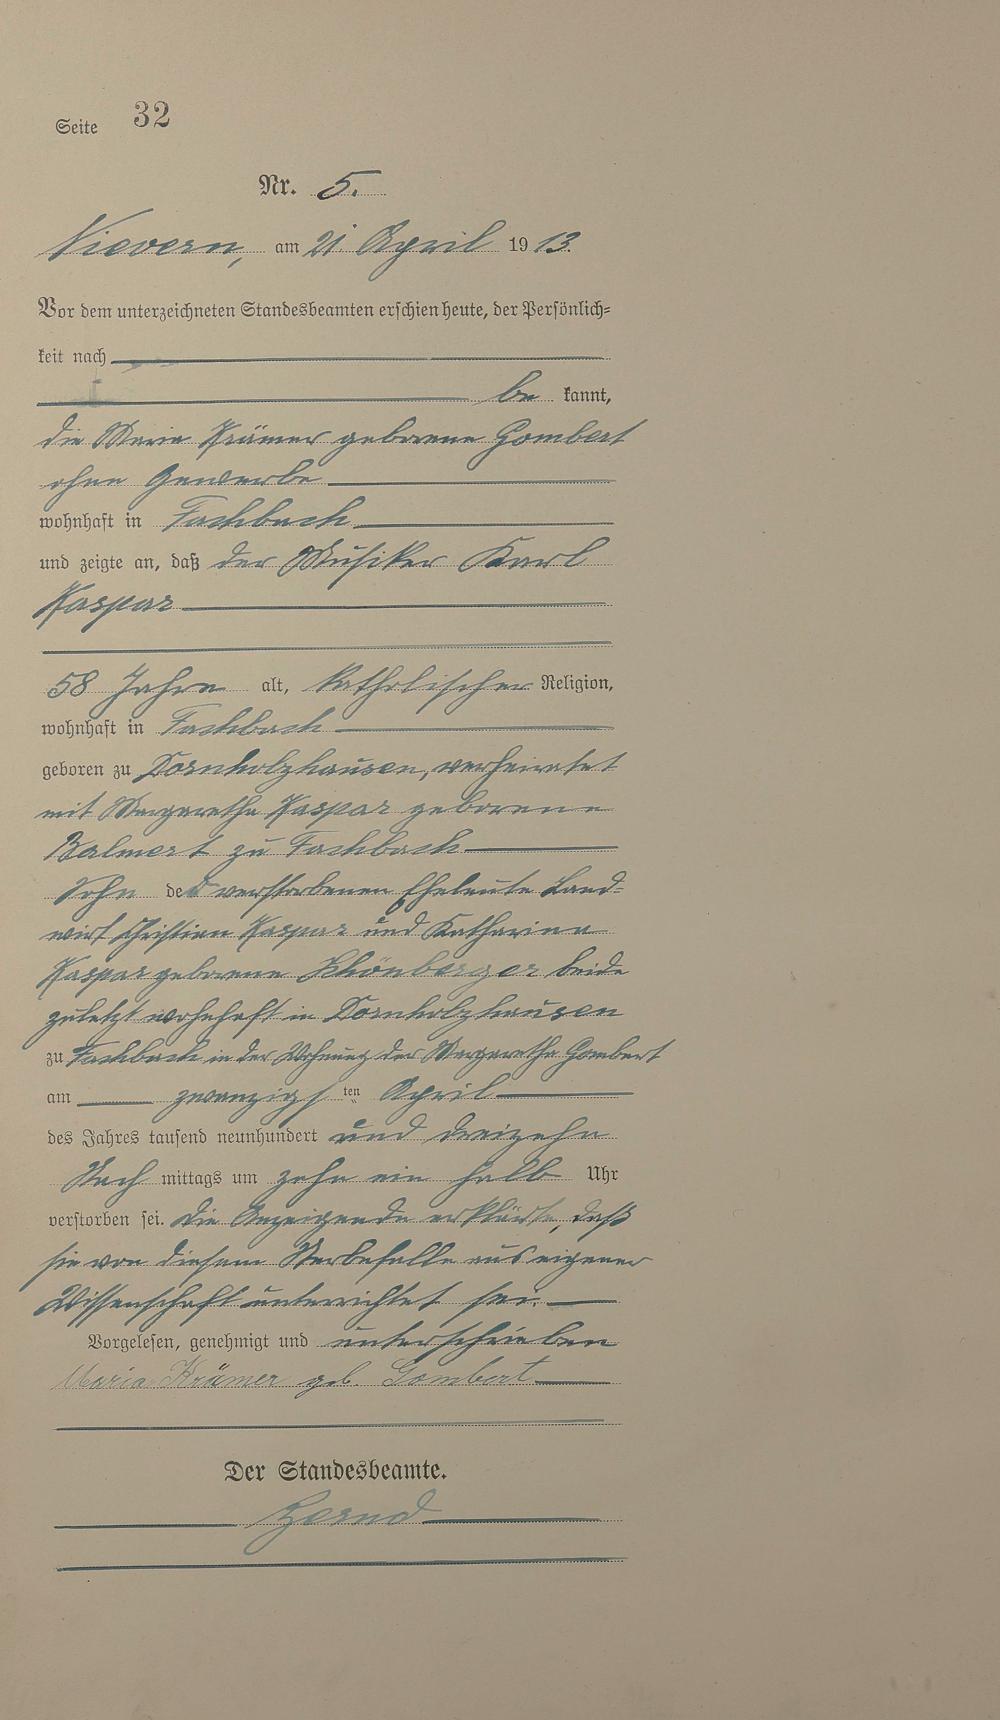 Seite 32
Nr. 5.
Nievern, am 21. April 1913.
Vor dem unterzeichneten Standesbeamten erschien heute, der Persönlich-
keit nach
be kannt,
die Maria Krämer geborene Gombert
ohne Gewerbe
wohnhaft in Fachbach
und zeigte an, daß der Musiker Karl
Kaspar
58 Jahre alt, katholischer Religion,
wohnhaft in Fachbach
geboren zu Dornholzhausen, verheiratet
mit Margaretha Kaspar geborene
Balmert zu Fachbach
Sohn der verstorbenen Eheleute Land-
wirt Christian Kaspar und Katharina
Kaspar geborene Schönberger beide
zuletzt wohnhaft in Dornholzhausen
zu Fachbach in der Wohnung der Margaretha Gombert
am zwanzigsten April
des Jahres tausend neunhundert und dreizehn
Nach mittags um zehn ein halb Uhr
verstorben sei. Die Anzeigende erklärte, daß
sie von diesem Sterbefalle aus eigener
Wissenschaft unterrichtet sei.
Vorgelesen, genehmigt und unterschrieben
Maria Krämer geb. Gombert
Der Standesbeamte.